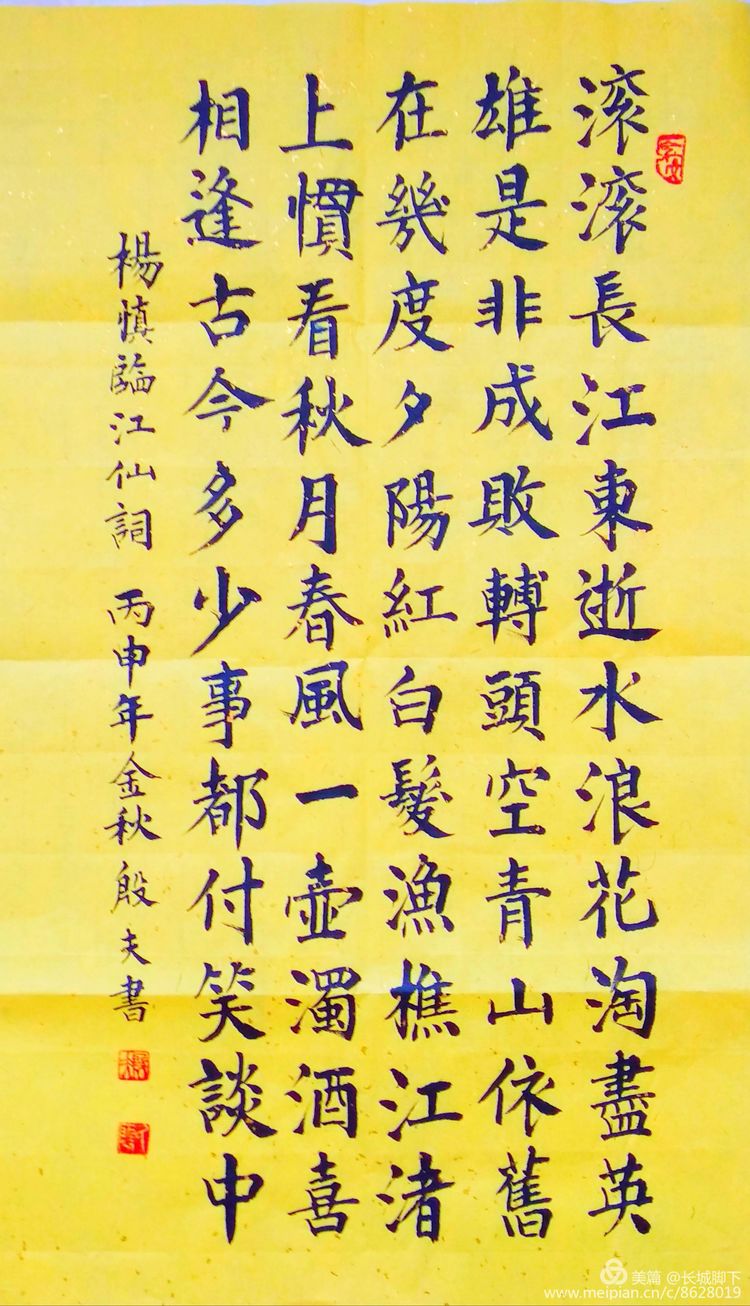 滚滚長江東逝水浪花淘盡英
雄是非成敗轉頭空青山依舊
在幾度夕陽紅白髮漁樵江渚
上慣看秋月春風一壺濁酒喜
相逢古今多少事都付笑談中
楊慎臨江仙詞 丙申年金秋 殷夫書
美篇 @长城脚下
www.meipian.cn/c/8628019